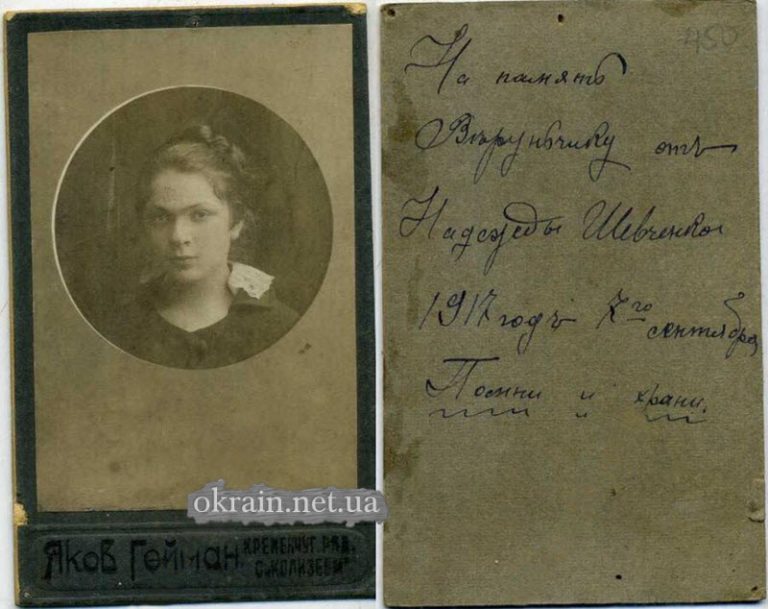 okrain.net.ua
Яков Гейман.
КРЕМЕНЧУГ РЯД.
С „КОЛИЗЕЕМ"
450
На память
Вѣрунѣчику отъ
Надежды Шевченко
1917 годъ 7го сентября
Помни и храни.